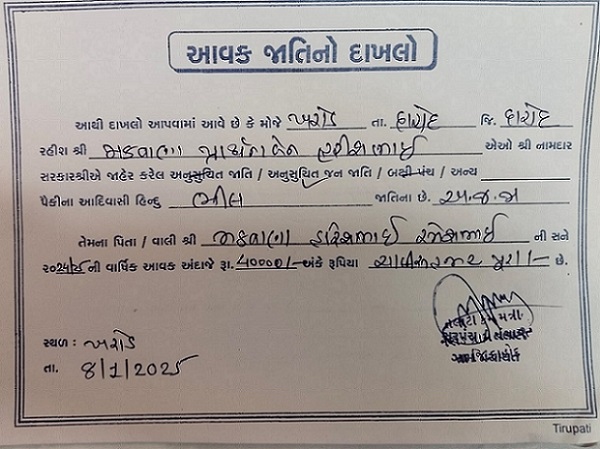 આવક જાતિનો દાખલો
આથી દાખલો આપવામાં આવે છે કે મોજે ખરોડ તા. દાહોદ જિ. દાહોદ
રહીશ શ્રી મકવાણા હરીશભાઈ એઓ શ્રી નામદાર
સરકારશ્રીએ જાહેર કરેલ અનુસુચિત જાતિ / અનુસુચિત જન જાતિ / બક્ષી પંચ / અન્ય
પૈકીના આદિવાસી હિન્દુ ભીલ જાતિના છે. અ.જ.જા
તેમના પિતા / વાલી શ્રી મકવાણા હરીશભાઈ રમેશભાઈ ની સને
૨૦૨૪/૨૫ ની વાર્ષિક આવક અંદાજે રૂા. ૪૦૦૦૦/- અંકે રૂપિયા ચાલીસ હજાર પુરા/- છે.
સ્થળ : ખરોડ
તા. 8/1/2025
તલાટી કમ મંત્રી
Tirupati